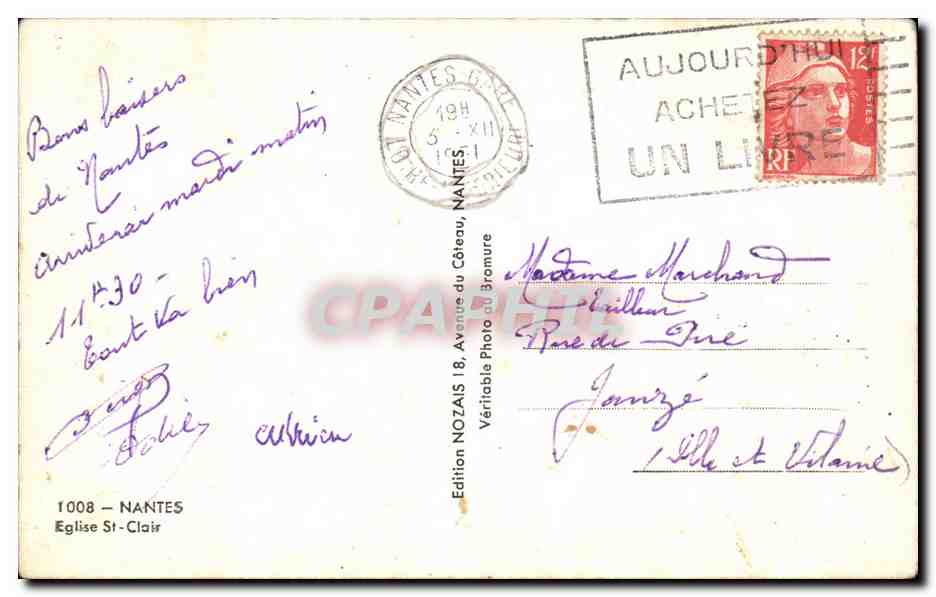 Bons baisers
de Nantes
arriverai mardi matin
11H30 -
tout va bien
1008 – NANTES
Eglise St-Clair
Edition NOZAIS 18, Avenue du Côteau, NANTES
Véritable Photo au Bromure
NANTES GARE
19H
5 - XII
1951
LOIRE INFERIEURE
AUJOURD'HUI
ACHETEZ
UN LIVRE
12F
POSTES
RF
CPAPHIL
Madame Marchand
tailleur
Rue de Piré
Janzé
(Ille et Vilaine)